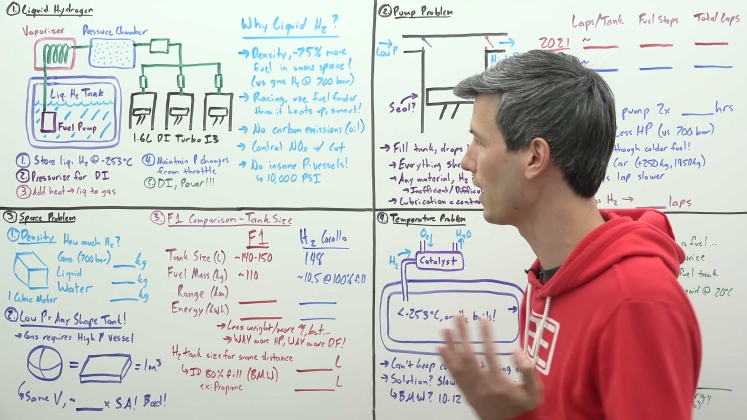 ① Liquid Hydrogen
Vaporizer
Pressure Chamber
Liq. H₂ Tank
Fuel Pump
1.6L DI Turbo I3
① Store liq. H₂ @ -253°C
② Pressurize for DI
③ Add heat → liq to gas
④ Maintain P changes
from throttle
⑤ DI, Power!!!
Why Liquid H₂?
→ Density, ~75% more
fuel in same space!
(vs gas H₂ @ 700 bar)
→ Racing, use fuel faster
than it heats up, smart!
→ No carbon emissions (oil)
→ Control NOx w/ Cat
→ No insane P vessels!
↳ 10,000 PSI
② Pump Problem
Low P
Seal?
→ Fill tank, drops
→ Everything
→ Any material, H₂
→ Lubrication = cont
Laps/Tank Fuel Stops Total Laps
2021
pump 2x ___ hrs
Less HP (vs 700 bar)
though colder fuel!
Car (+250kg, 1950kg)
lap slower
H₂ → ___ laps
③ Space Problem
① Density How much H₂?
Gas (700 bar) ___ kg
Liquid ___ kg
Water ___ kg
1 Cubic Meter
② Low P: Any Shape Tank!
→ Gas requires High P vessel
= = 1m³
↳ Same V, ~ ___ x S.A! Bad!
③ F1 Comparison = Tank Size
F1 H₂ Corolla
Tank Size (L) ~140-150 148
Fuel Mass (kg) ~110 ~10.5 @ 100% fill
Range (km)
Energy (kWh)
→ Less weight/more η, but...
→ WAY more HP, WAY more DF!
H₂ tank size for same distance ___ L
↳ ID 80% fill (BMW) ___ L
ex: Propane
④ Temperature Problem
O₂ H₂O
H₂
Catalyst
< -253°C, or it boils!
→ Can't keep
→ Solution? Slow
↳ BMW? 10-12
a fuel...
fuel tank
@ 20°C